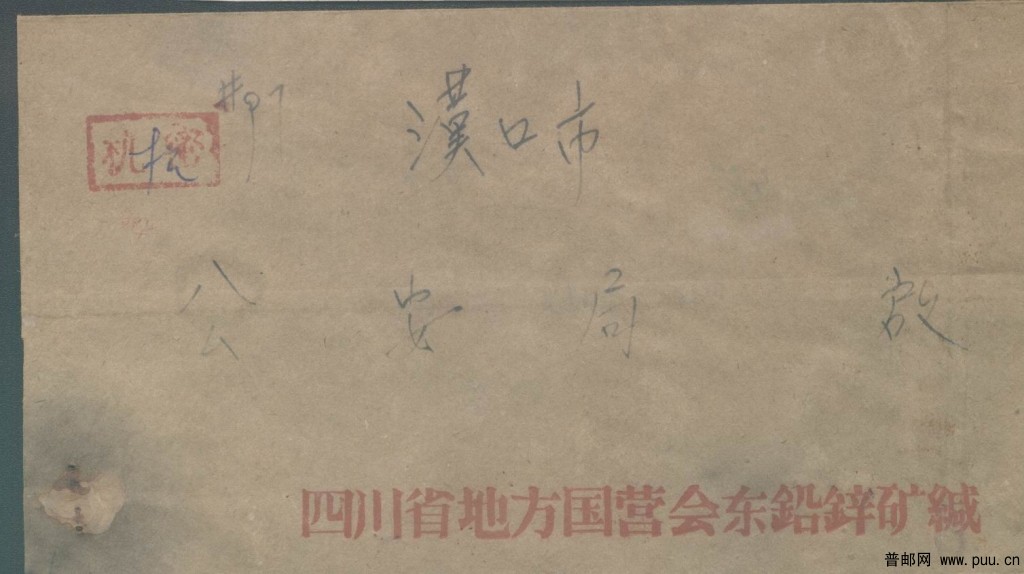 机密
漢口市
公安局 啟
四川省地方国营会东鉛鋅矿緘
普邮网 www.puu.cn